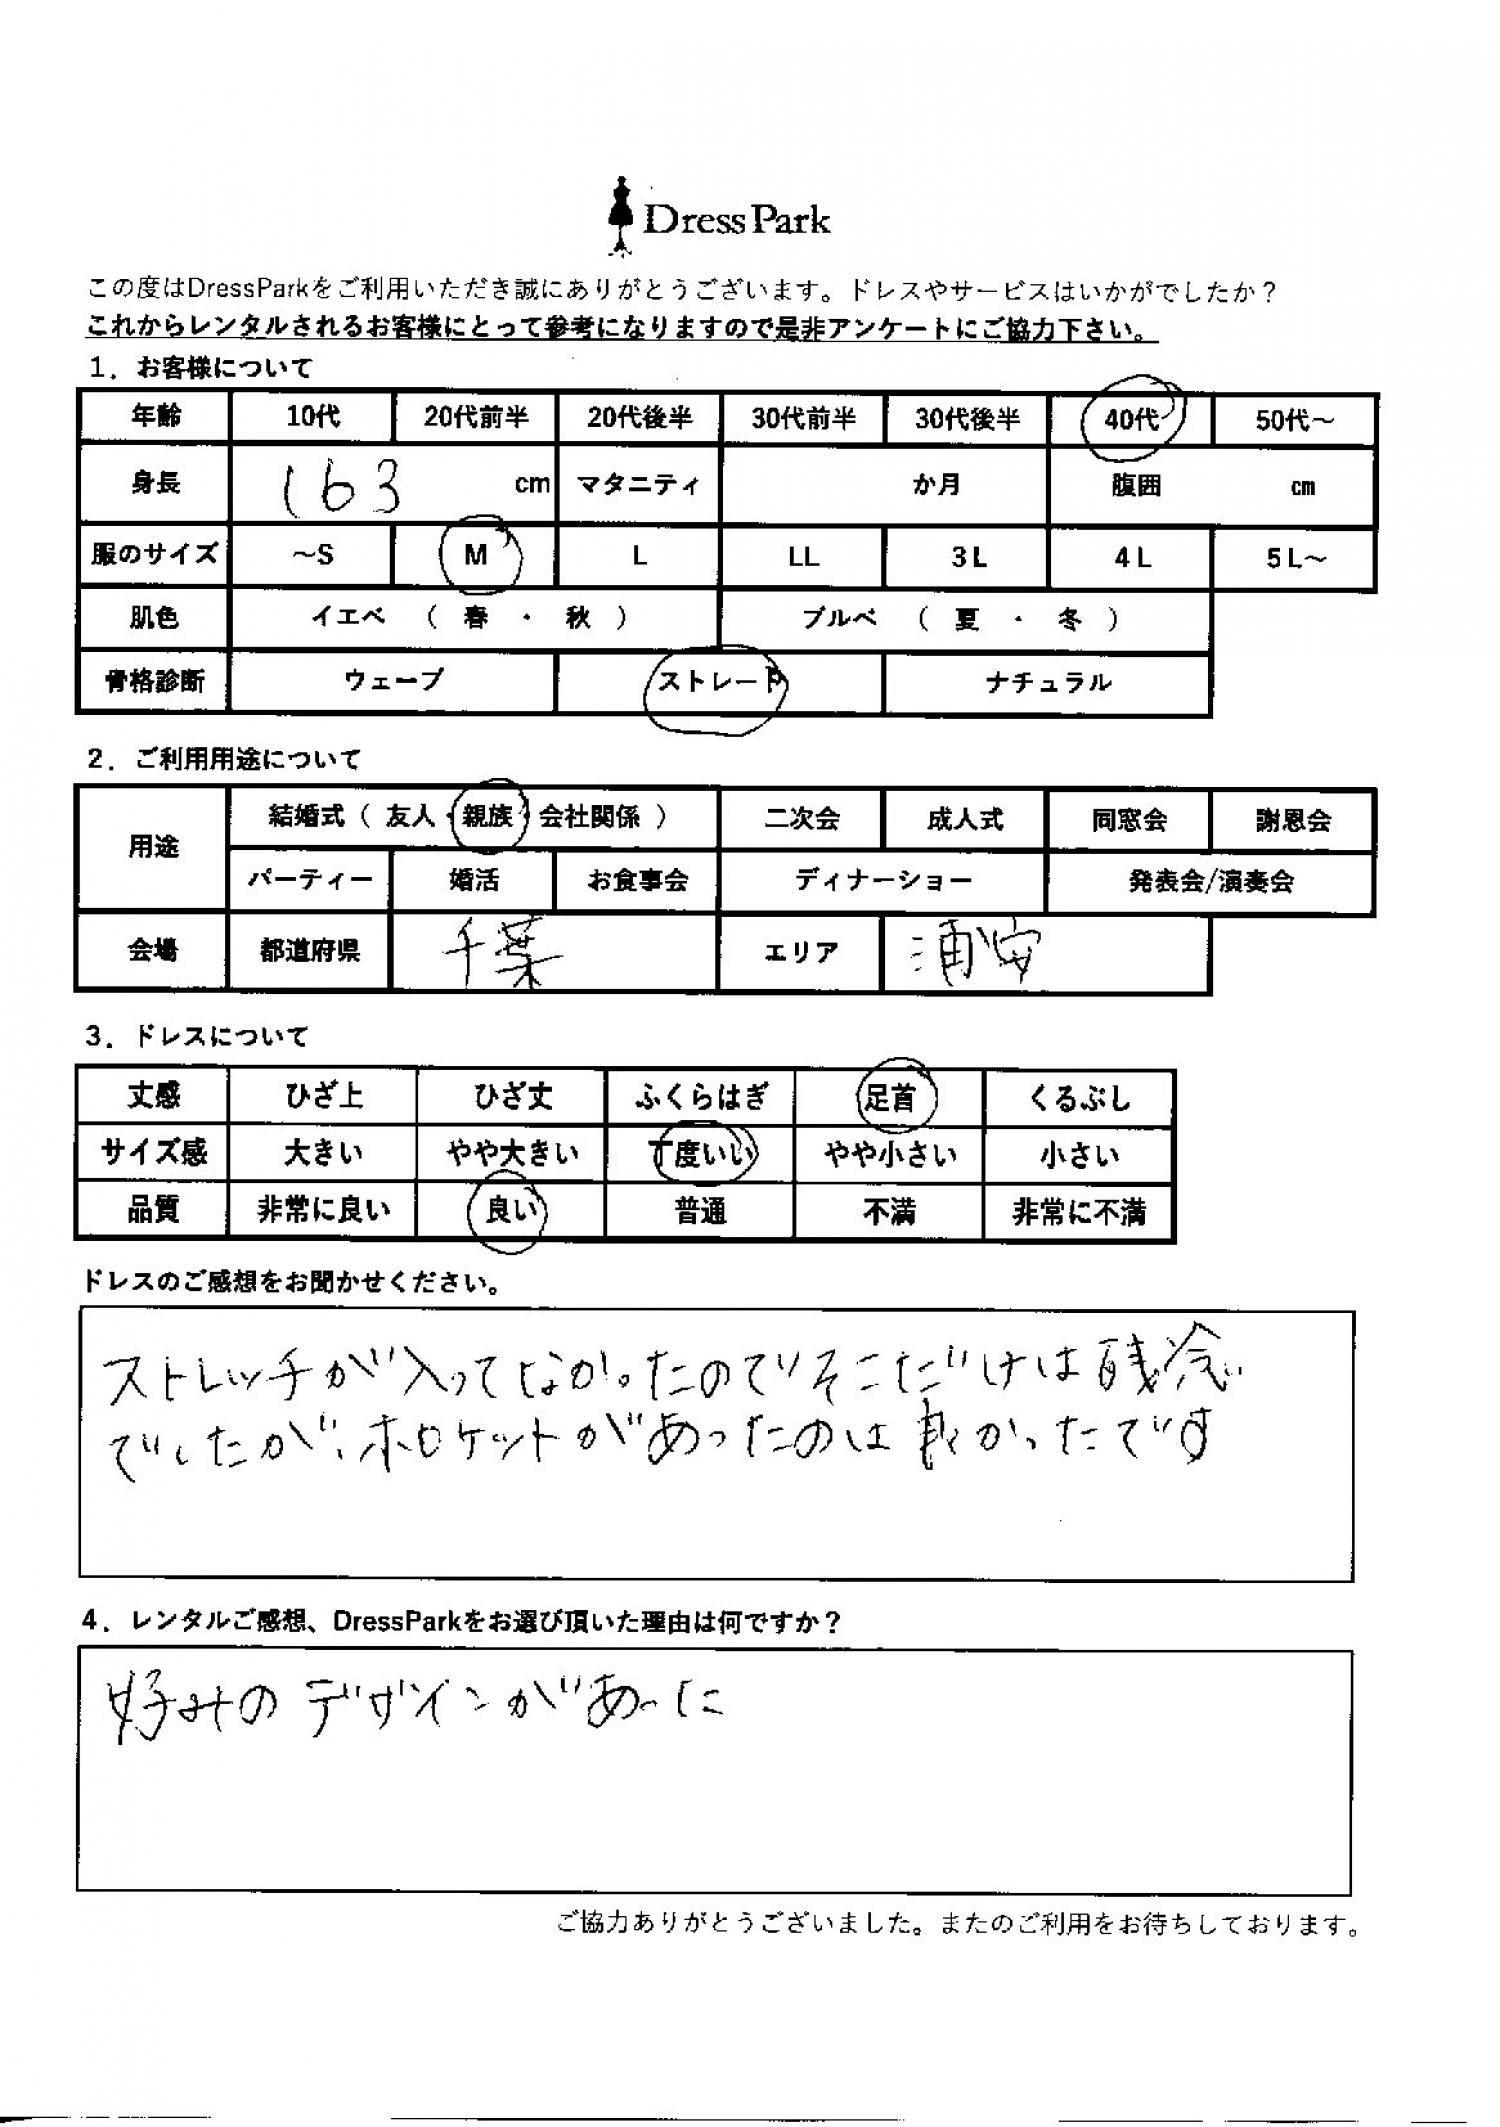 DressPark
この度はDressParkをご利用いただき誠にありがとうございます。ドレスやサービスはいかがでしたか？
これからレンタルされるお客様にとって参考になりますので是非アンケートにご協力下さい。
1．お客様について
年齢 10代 20代前半 20代後半 30代前半 30代後半 40代 50代～
身長 163 cm マタニティ か月 腹囲 cm
服のサイズ ～S M L LL 3L 4L 5L～
肌色 イエベ （ 春 ・ 秋 ） ブルベ （ 夏 ・ 冬 ）
骨格診断 ウェーブ ストレート ナチュラル
2．ご利用用途について
用途 結婚式（ 友人・親族・会社関係 ） 二次会 成人式 同窓会 謝恩会
パーティー 婚活 お食事会 ディナーショー 発表会/演奏会
会場 都道府県 千葉 エリア 浦安
3．ドレスについて
丈感 ひざ上 ひざ丈 ふくらはぎ 足首 くるぶし
サイズ感 大きい やや大きい 丁度いい やや小さい 小さい
品質 非常に良い 良い 普通 不満 非常に不満
ドレスのご感想をお聞かせください。
ストレッチが入ってなかったのでそこだけは残念
でしたが、ポケットがあったのは良かったです
4．レンタルご感想、DressParkをお選び頂いた理由は何ですか？
好みのデザインがあった
ご協力ありがとうございました。またのご利用をお待ちしております。